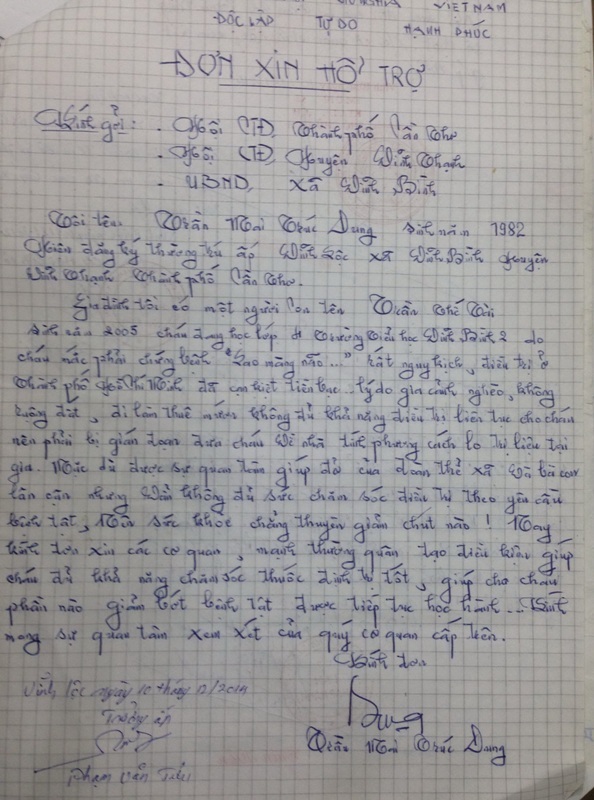 NGHĨA VIỆT NAM
ĐỘC LẬP TỰ DO HẠNH PHÚC
ĐƠN XIN HỔ TRỢ
Kính gởi: - Hội CTĐ, thành phố Cần Thơ
- Hội CTĐ Huyện Vĩnh Thạnh
- UBND, xã Vĩnh Bình
Tôi tên. Trần Mai Trúc Dung sinh năm 1982
Hiện đăng ký thường trú ấp Vĩnh Lộc xã Vĩnh Bình Huyện
Vĩnh Thạnh thành phố Cần Thơ.
Gia đình tôi có một người con tên Trần Thế Tài
sinh năm 2005 cháu đang học lớp 4 trường tiểu học Vĩnh Bình 2 do
cháu mắc phải chứng bệnh "Lao màng não..." rất nguy kịch, điều trị ở
thành phố Hồ Chí Minh đã cạn kiệt tiền bạc... lý do gia cảnh nghèo, không
ruộng đất, đi làm thuê mướn không đủ khả năng điều trị liên tục cho cháu
nên phải bị gián đoạn đưa cháu về nhà tính phương cách lo trị liệu tại
gia. Mặc dù được sự quan tâm giúp đở của đoàn thể xã và bà con
lân cận nhưng vẫn không đủ sức chăm sóc điều trị theo yêu cầu
bệnh tật, nên sức khỏe chẳng thuyên giảm chút nào! Nay
kính đơn xin các cơ quan, mạnh thường quân tạo điều kiện giúp
cháu đủ khả năng chăm sóc thuốc định trị tốt, giúp cho cháu
phần nào giảm bớt bệnh tật được tiếp tục học hành... Kính
mong sự quan tâm xem xét của quý cơ quan cấp trên.
Kính đơn
Vĩnh Lộc ngày 10 tháng 12/2014
Trưởng ấp
Dung
Trần Mai Trúc Dung
Phạm Văn